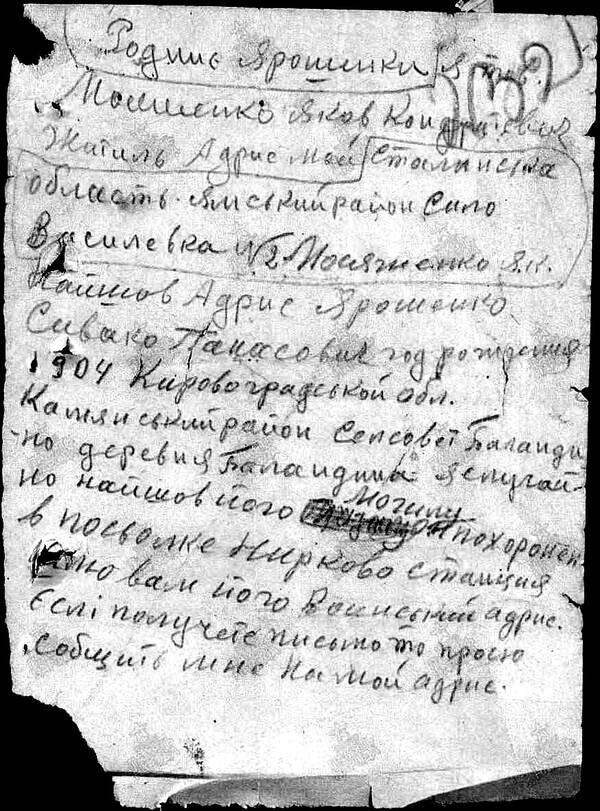 Родниє Ярошинки я
Мосиенко Яков Кондратєвич
Житиль Адрис мой Сталинська
область. Ямський район Сило
Василевка №2. Мосяженко Як.
Найшов Адрис Ярошенко
Сивако Панасович год рождения
1904 Кировоградской обл.
Камянський район Сепсовет Баланди
но деревня Баландина я случай-
но найшов його могилу похоронен
в посьолке Нирково станция
вам його Воинський адрис.
Єслі получете письмо то прошу
собщить мне на мой адрис.